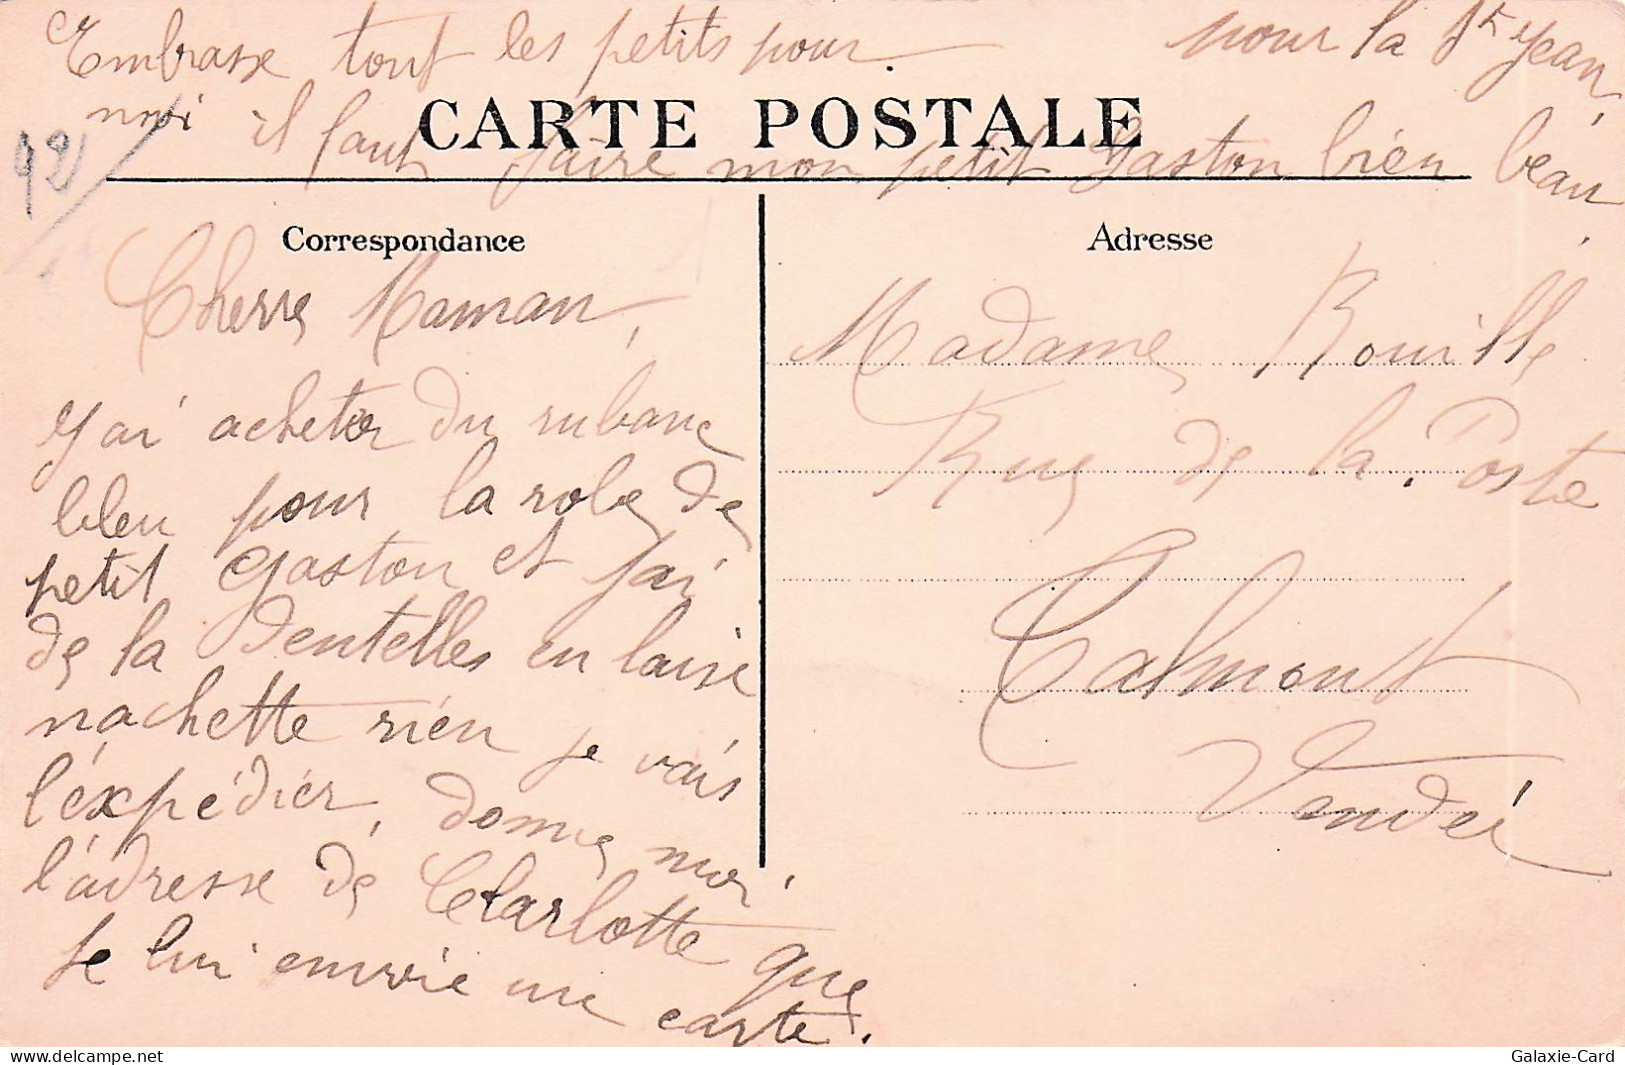 Embrasse tout les petits pour
moi il faut faire mon petit Gaston bien beau
pour la St Jean,
CARTE POSTALE
92
Correspondance
Cherre Maman,
j'ai acheter du rubane
bleu pour la robe de
petit Gaston et j'ai
de la dentelles en laise
nachette rien je vais
l'expédier, donne moi
l'adresse de Clarlotte que
je lui envoie une
carte.
Adresse
Madame Rouille
Rue de la Poste
Talmont
Vendéé
Galaxie-Card